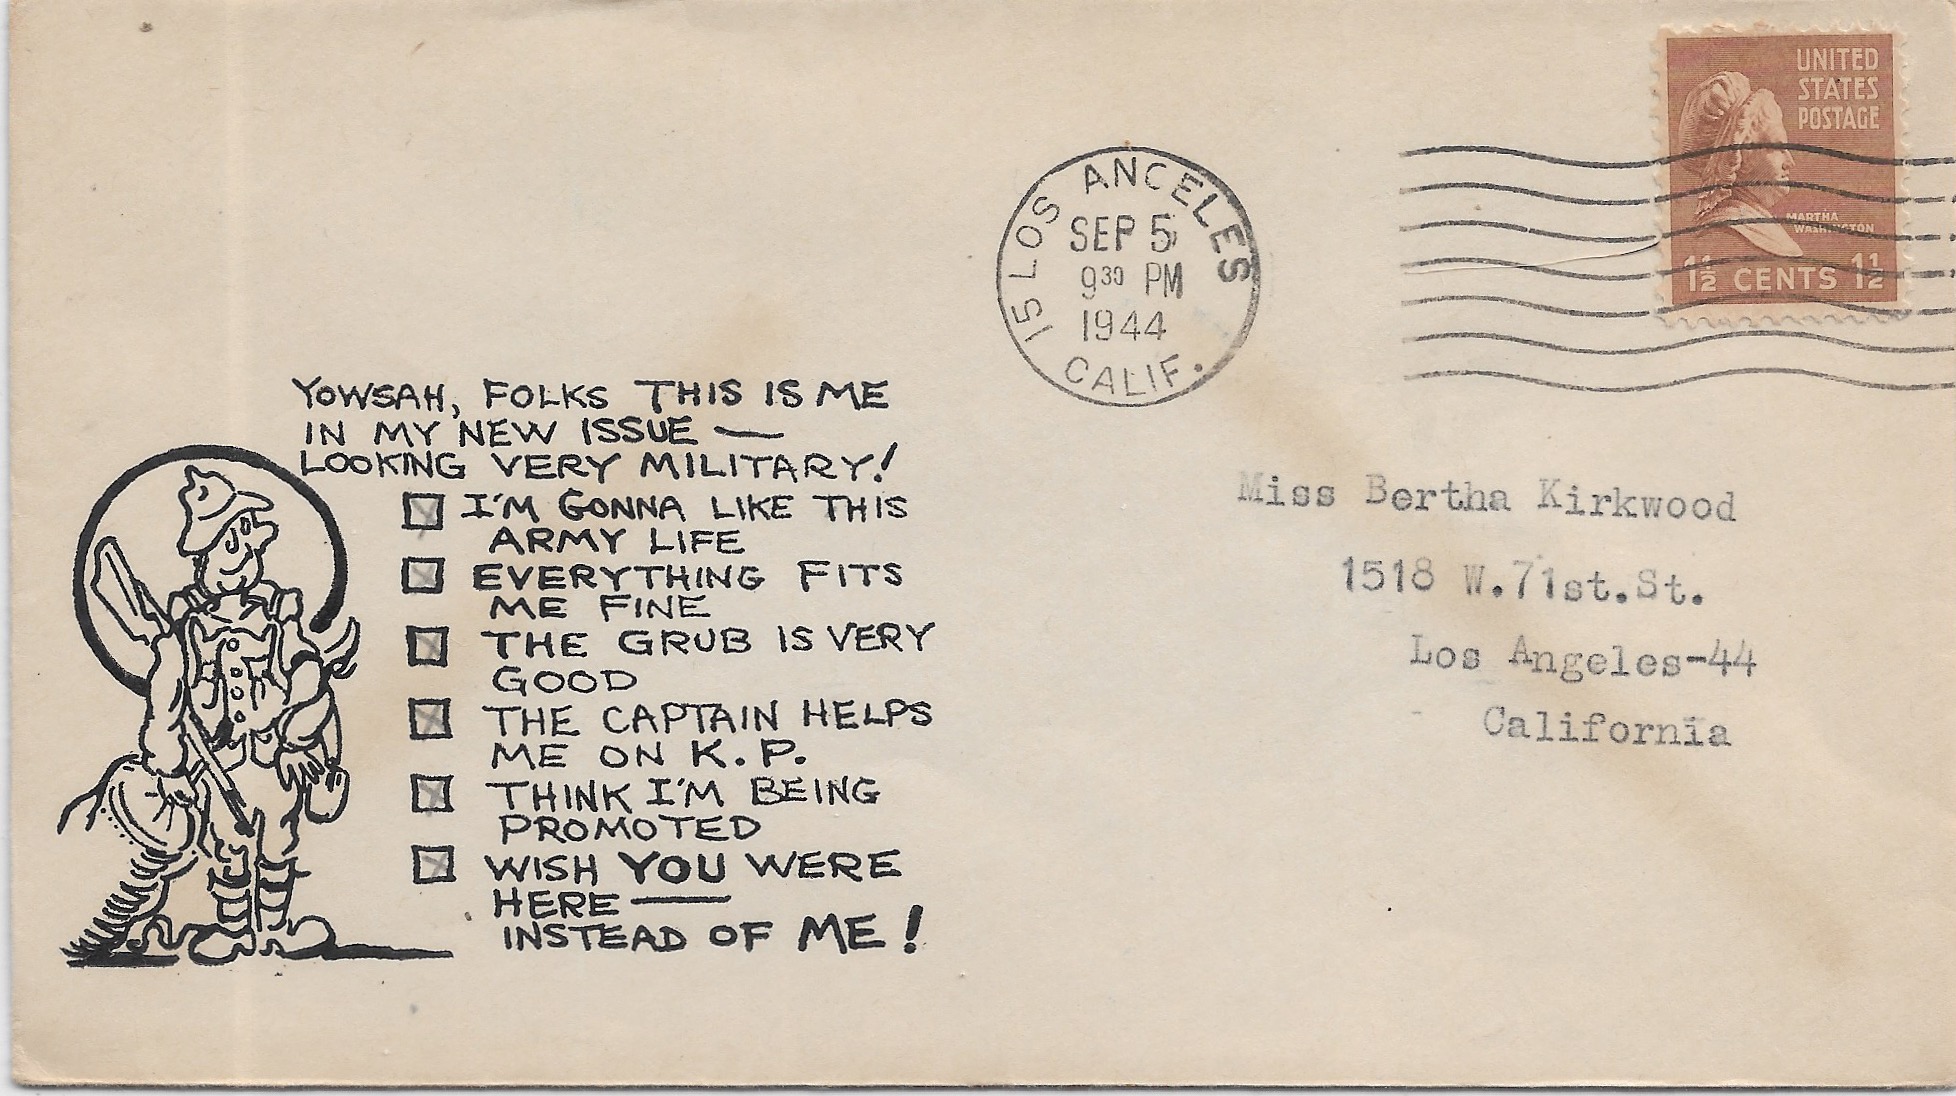 UNITED
STATES
POSTAGE
MARTHA
WASHINGTON
1½ CENTS 1½
15 LOS ANGELES
SEP 5
9³⁰ PM
1944
CALIF.
YOWSAH, FOLKS THIS IS ME
IN MY NEW ISSUE —
LOOKING VERY MILITARY!
I'M GONNA LIKE THIS
ARMY LIFE
EVERYTHING FITS
ME FINE
THE GRUB IS VERY
GOOD
THE CAPTAIN HELPS
ME ON K.P.
THINK I'M BEING
PROMOTED
WISH YOU WERE
HERE —
INSTEAD OF ME!
Miss Bertha Kirkwood
1518 W.71st.St.
Los Angeles-44
California